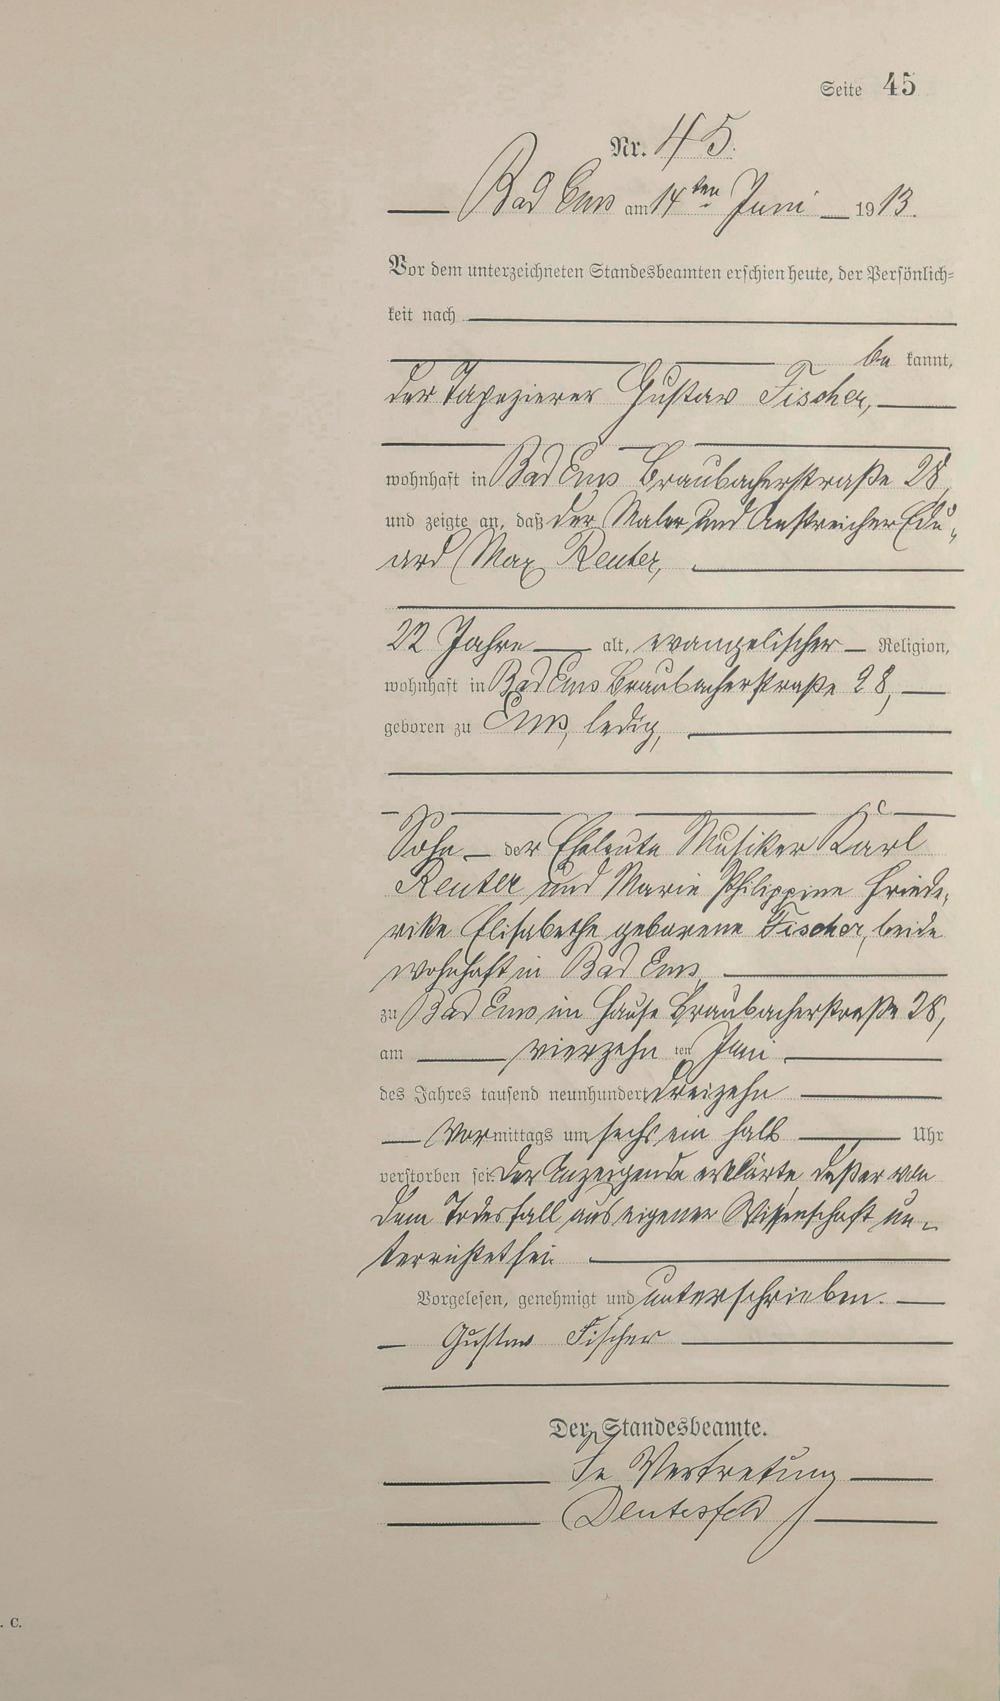 Seite 45
Nr. 45.
Bad Ems am 14ten Juni 1913.
Vor dem unterzeichneten Standesbeamten erschien heute, der Persönlich-
keit nach
be kannt,
der Tapezierer Gustav Fischer,
wohnhaft in Bad Ems Braubacherstraße 28,
und zeigte an, daß der Maler und Anstreicher Edu-
ard Max Reuter,
22 Jahre alt, evangelischer Religion,
wohnhaft in Bad Ems Braubacherstraße 28,
geboren zu Ems, ledig,
Sohn der Eheleute Musiker Karl
Reuter und Marie Philippine Friede-
rike Elisabethe geborene Fischer, beide
wohnhaft in Bad Ems
zu Bad Ems im Hause Braubacherstraße 28,
am vierzehn ten Juni
des Jahres tausend neunhundert dreizehn
Vormittags um sechs ein halb Uhr
verstorben sei. Der Anzeigende erklärte daß er von
dem Todesfall aus eigener Wissenschaft un-
terrichtet sei.
Vorgelesen, genehmigt und unterschrieben.
Gustav Fischer
Der Standesbeamte.
In Vertretung
. C.